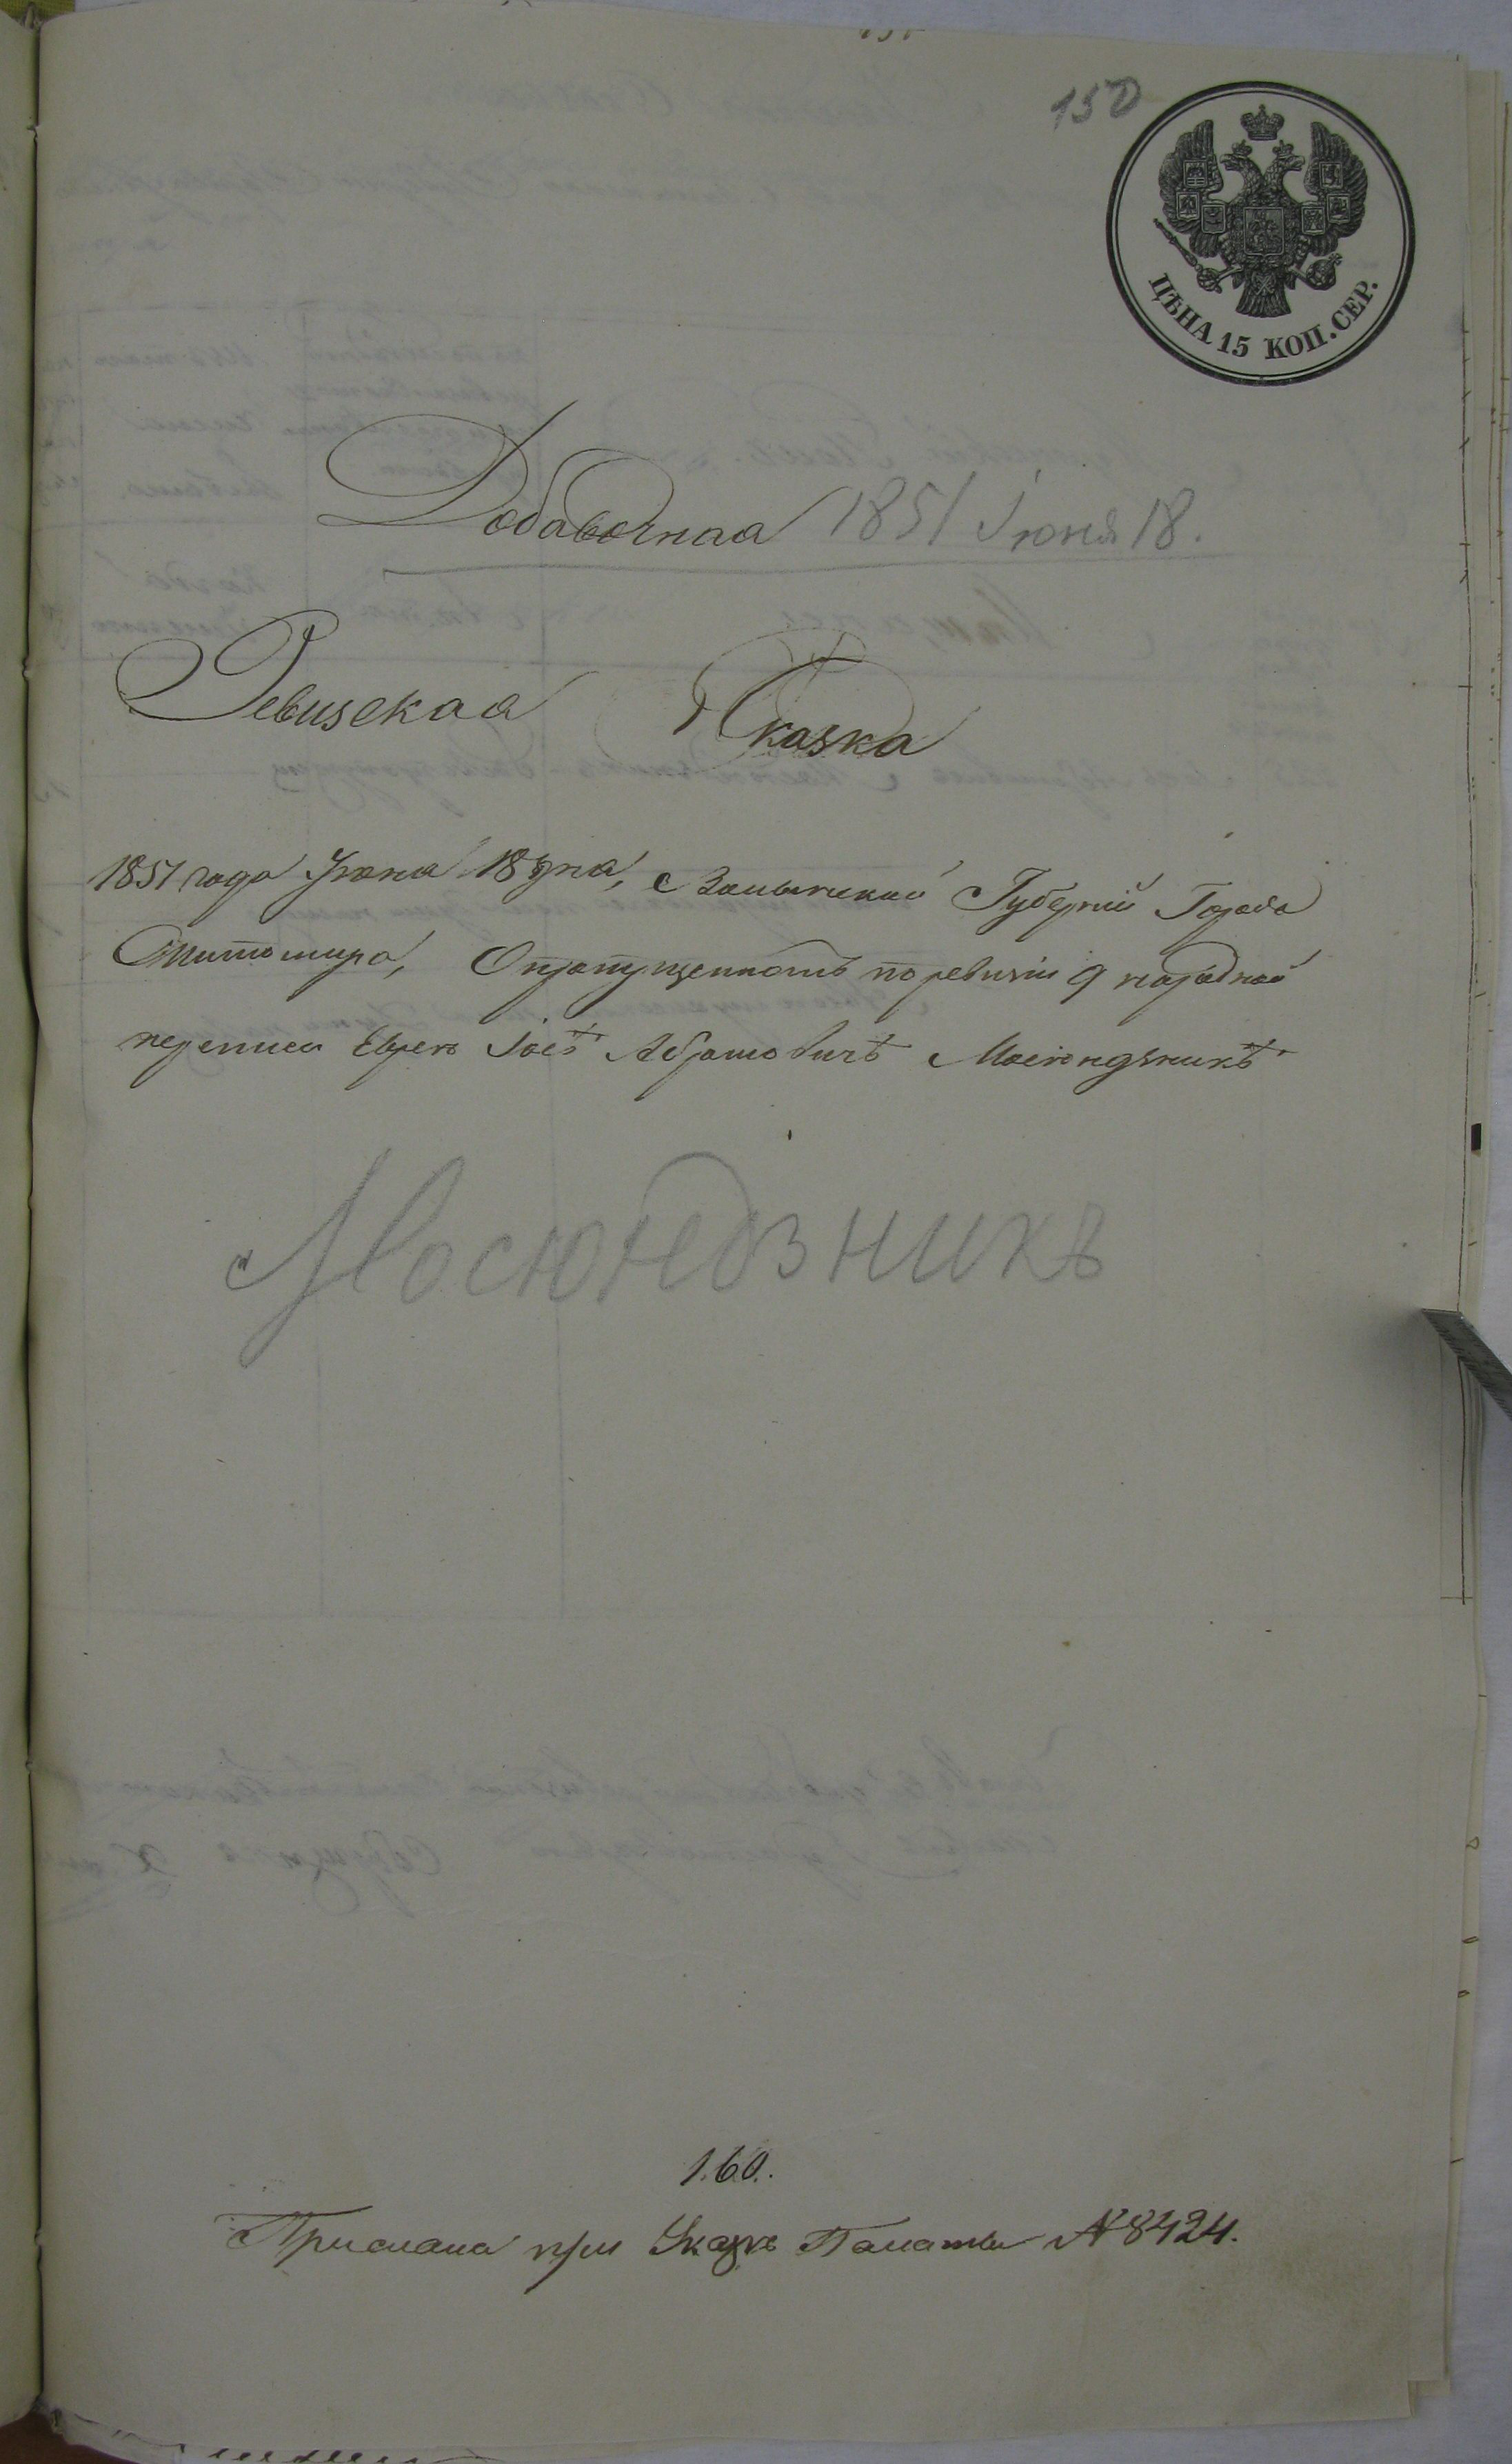 150
ЦѢНА 15 КОП. СЕР.
Добавочная 1851 Іюня 18.
Ревизская Сказка
1851 года Іюня 18 дня, Волынской Губерніи Города
Житомира, О пропущенномъ по ревизіи 9 народной
переписи Еврею Іосѣ Абрамовичѣ Масюндзникѣ
Масюндзникъ
1.60.
Прислана при Указѣ Палаты № 8424.